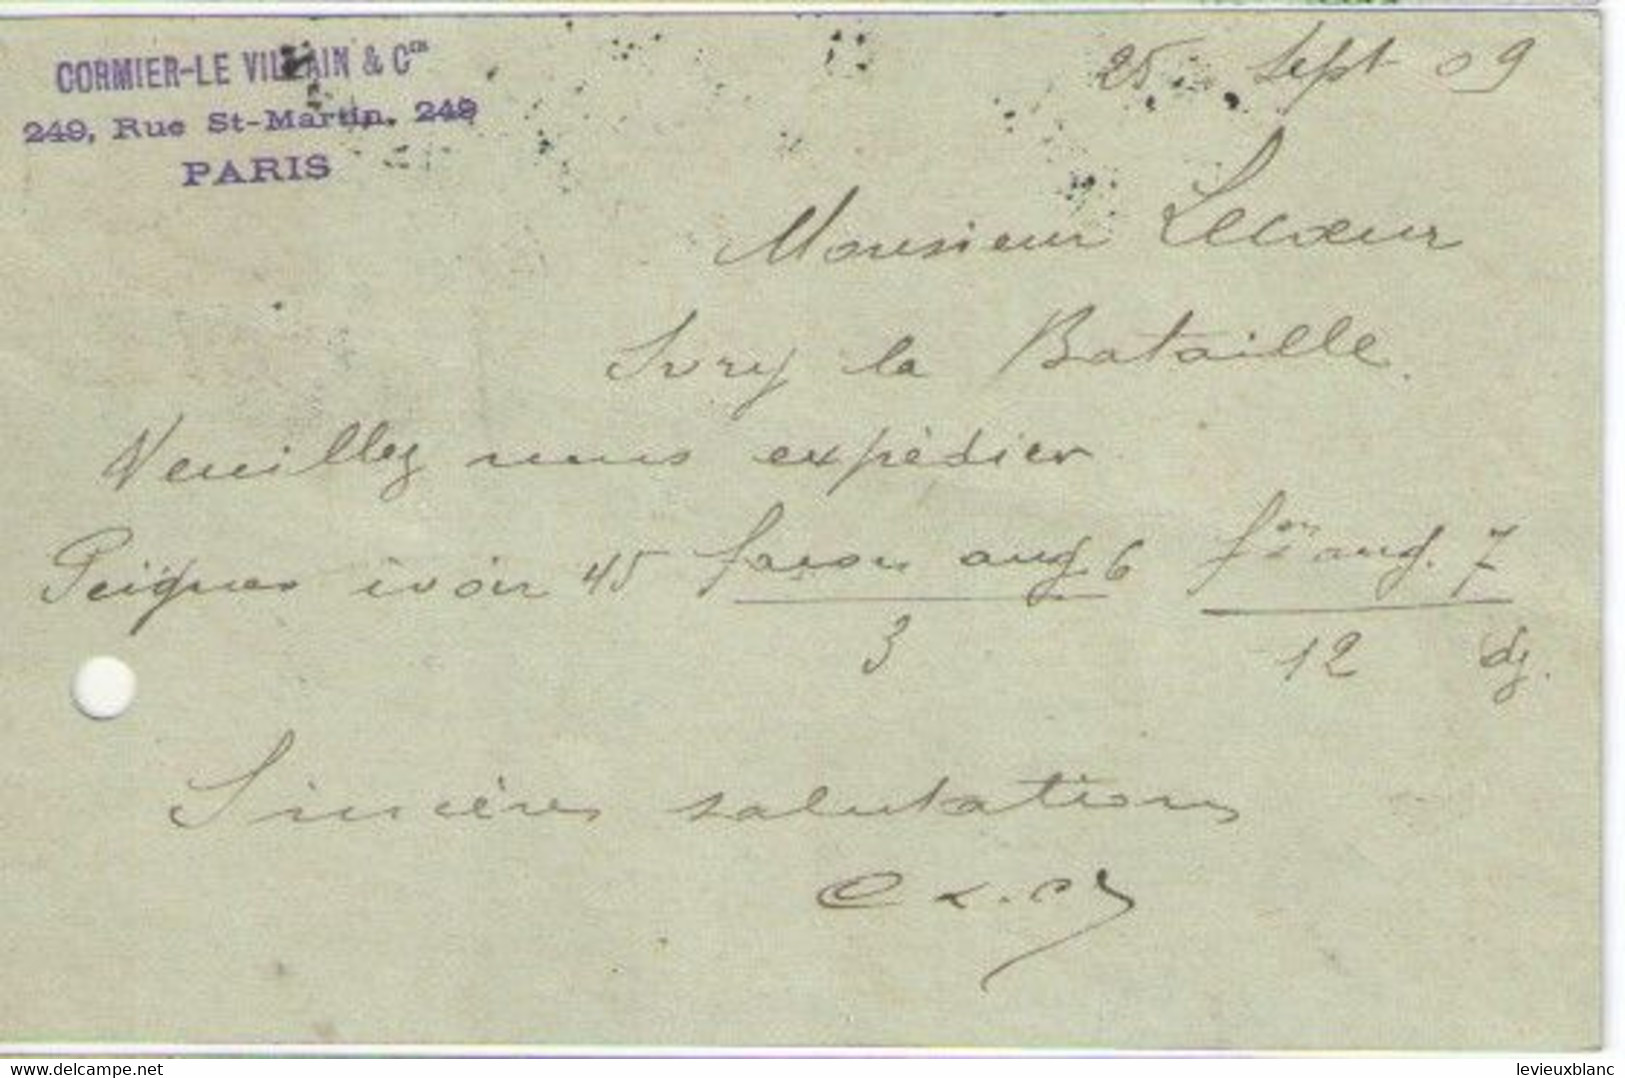 CORMIER-LE VILLAIN & Cie
249, Rue St-Martin. 249
PARIS
25 Sept 09
Monsieur Lecoeur
Ivry la Bataille.
Veuillez nous expédier
Peignes ivoir 45 façon ang. 6 fon ang. 7
3 12 dz.
Sincères salutations
www.delcampe.net
levieuxblanc